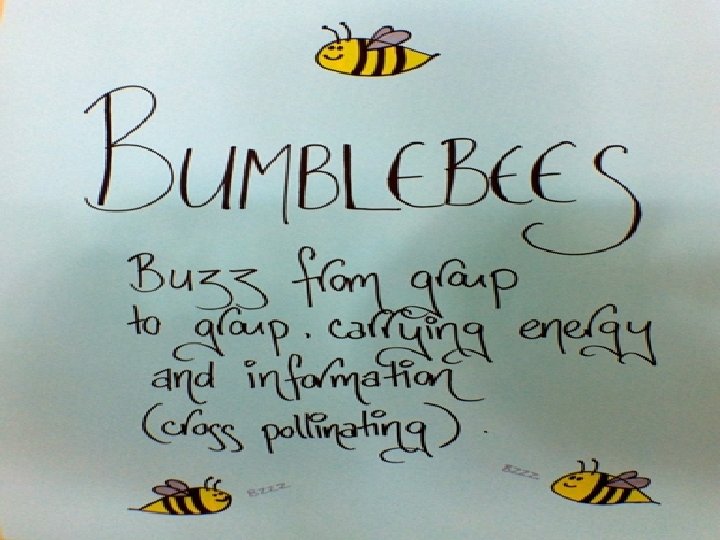 BUMBLEBEES
Buzz from group
to group. carrying energy
and information
(cross pollinating).
BZZZ
BZZZ